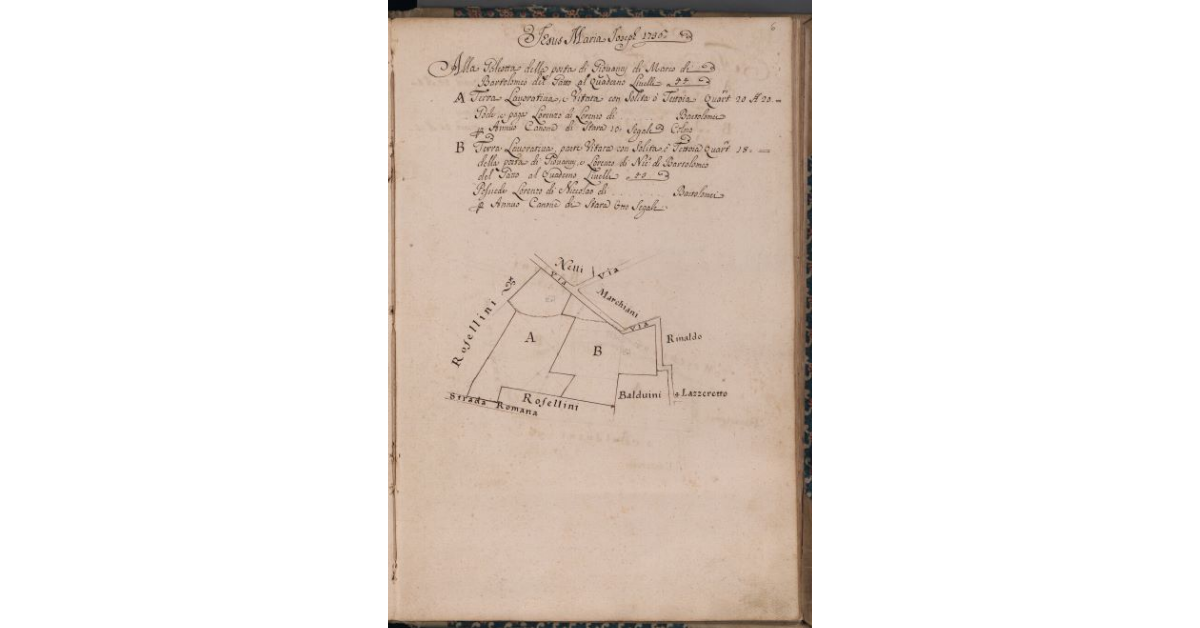 6
Jesus Maria Joseph 1736
Alla Poliza della posta di Giovanni di Mario di
Bartolomeo del Pozzo al Quaderno Livelli 44
A Terra Lavoratiua, e Vitata con Solita ò Tettoia Quart. 20 H 20
Pode e paga Lorenzo di Lorenzo di Bartolomei
p Annuo Canone di Stara 10 Segale Colmo
B Terra Lavoratiua, parte Vitata con Solita ò Tettoia Quart. 18
della posta di Giovanni, e Lorenzo di di Bartolomeo
del al Quaderno Livelli 44
Possiede Lorenzo di Niccolao di Bartolomei
p Annuo Canone di Stara Segale
Netti
Via
Via
Marchiani
Via
Rinaldo
Rosellini
A
B
Balduini
a Lazzeretto
Rosellini
Strada Romana